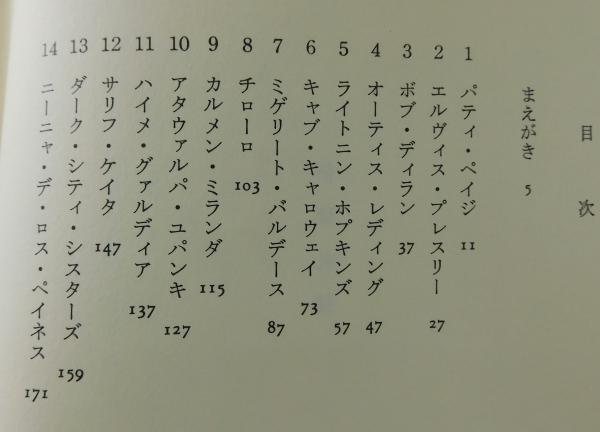 目次
まえがき 5
1 パティ・ペイジ 11
2 エルヴィス・プレスリー 27
3 ボブ・ディラン 37
4 オーティス・レディング 47
5 ライトニン・ホプキンズ 57
6 キャブ・キャロウェイ 73
7 ミゲリート・バルデース 87
8 チローロ 103
9 カルメン・ミランダ 115
10 アタウァルパ・ユパンキ 127
11 ハイメ・グァルディア 137
12 サリフ・ケイタ 147
13 ダーク・シティ・シスターズ 159
14 ニーニャ・デ・ロス・ペイネス 171